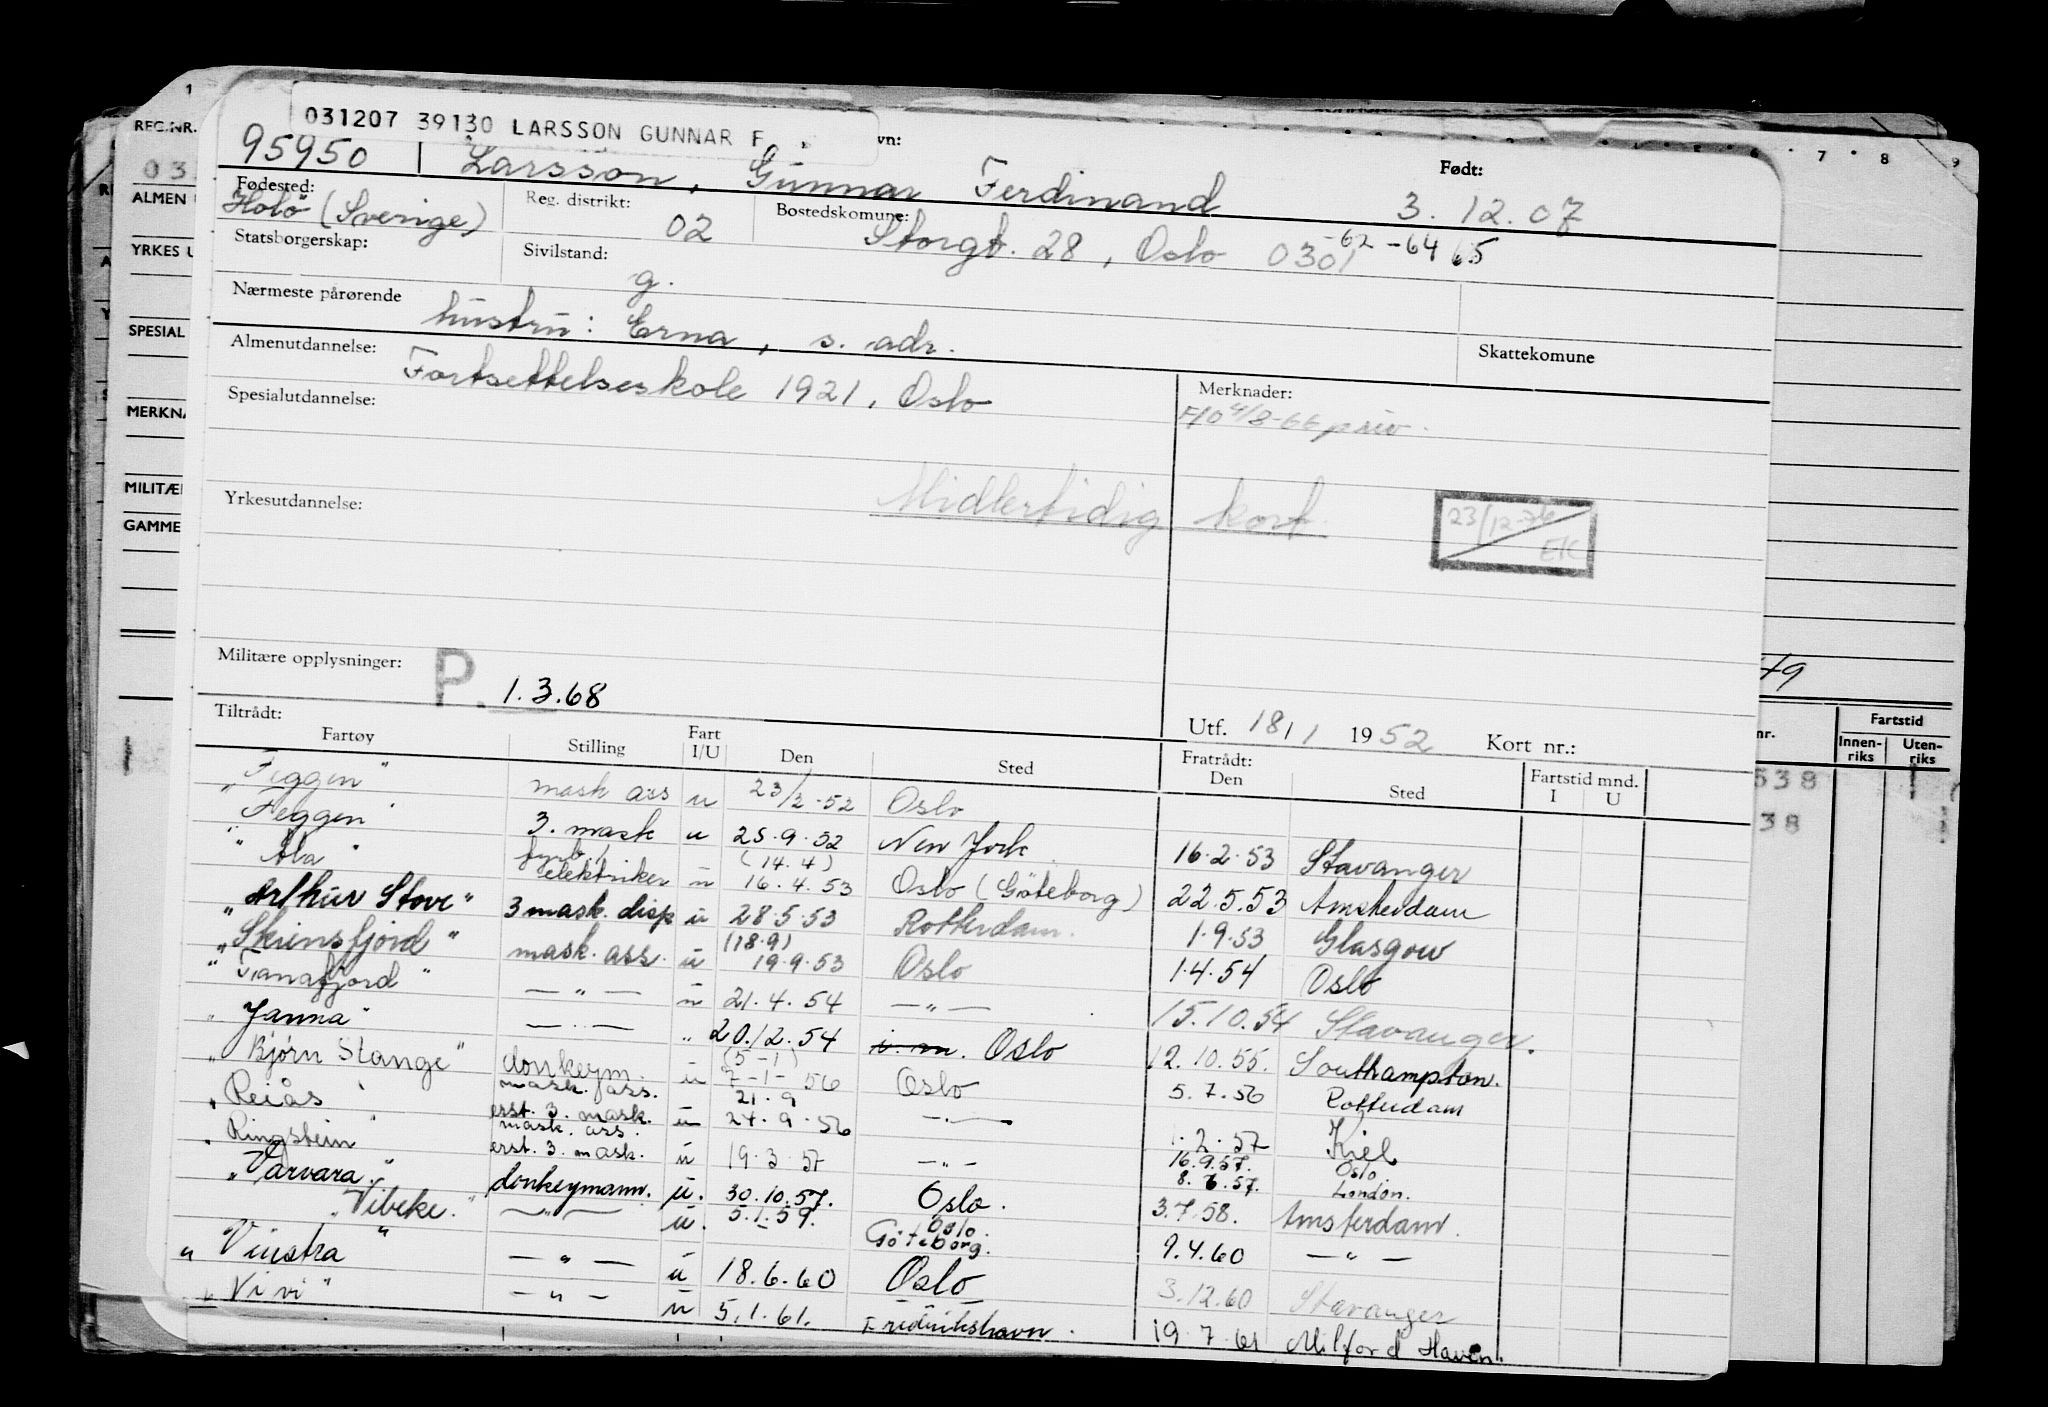 031207 39130 LARSSON GUNNAR F.
vn:
95950 Larsson, Gunnar Ferdinand
Født: 3.12.07
Fødested: Holö (Sverige)
Reg. distrikt: 02
Bostedskomune: Storgt. 28, Oslo 0301 -62 -64 65
Statsborgerskap:
Sivilstand: g.
Nærmeste pårørende hustru: Erna, s. adr.
Skattekomune
Almenutdannelse: Fortsettelseskole 1921, Oslo
Spesialutdannelse:
Merknader:
4/8-66 priv.
Yrkesutdannelse:
Midlertidig kort
23/12-76 EK
Militære opplysninger: P. 1.3.68
Utf. 18/1 1952 Kort nr.:
Tiltrådt:
Fratrådt:
Fartøy Stilling Fart I/U Den Sted Den Sted Fartstid mnd. I U
"Feggen" mask ass u 23/2-52 Oslo
"Feggen" 3. mask u 25.9.52 New York 16.2.53 Stavanger
"Ala" fyrb./elektriker u (14.4) 16.4.53 Oslo (Göteborg) 22.5.53 Amsterdam
"Arthur Stove" 3 mask. disp u 28.5.53 Rotterdam. 1.9.53 Glasgow
"Skiensfjord" mask. ass. u (18.9) 19.9.53 Oslo 1.4.54 Oslo
"Tanafjord" — " — u 21.4.54 — " — 15.10.54 Stavanger.
"Janna" — " — " 20.12.54 Oslo 12.10.55. Southampton.
"Bjørn Stange" donkeym. u (5-1) 7-1-56 Oslo 5.7.56 Rotterdam
"Reiås" mask. ass. erst. 3. mask. u 21.9 24.9.56 — " — 1.2.57 Kiel
"Ringstein" mask. ass. erst. 3. mask. u 19.3.57 — " — 16.9.57. Oslo. 8.6.57. London.
"Varvara" donkeymann. u. 30.10.57. Oslo. 3.7.58. Amsterdam.
"Vibeke" — " — u. 5.1.59. Oslo. Göteborg. 9.4.60 — " —
"Vinstra" — " — u 18.6.60 Oslo 3.12.60 Stavanger
"Vivi" — " — u 5.1.61. Fredrikshavn. 19.7.61 Milford Haven.
REG.NR.
03
ALMEN
YRKES U
SPESIAL
MERKNA
MILITÆ
GAMME
6 7 8 9
49
nr.
Fartstid
Innen-riks
Uten-riks
538
38